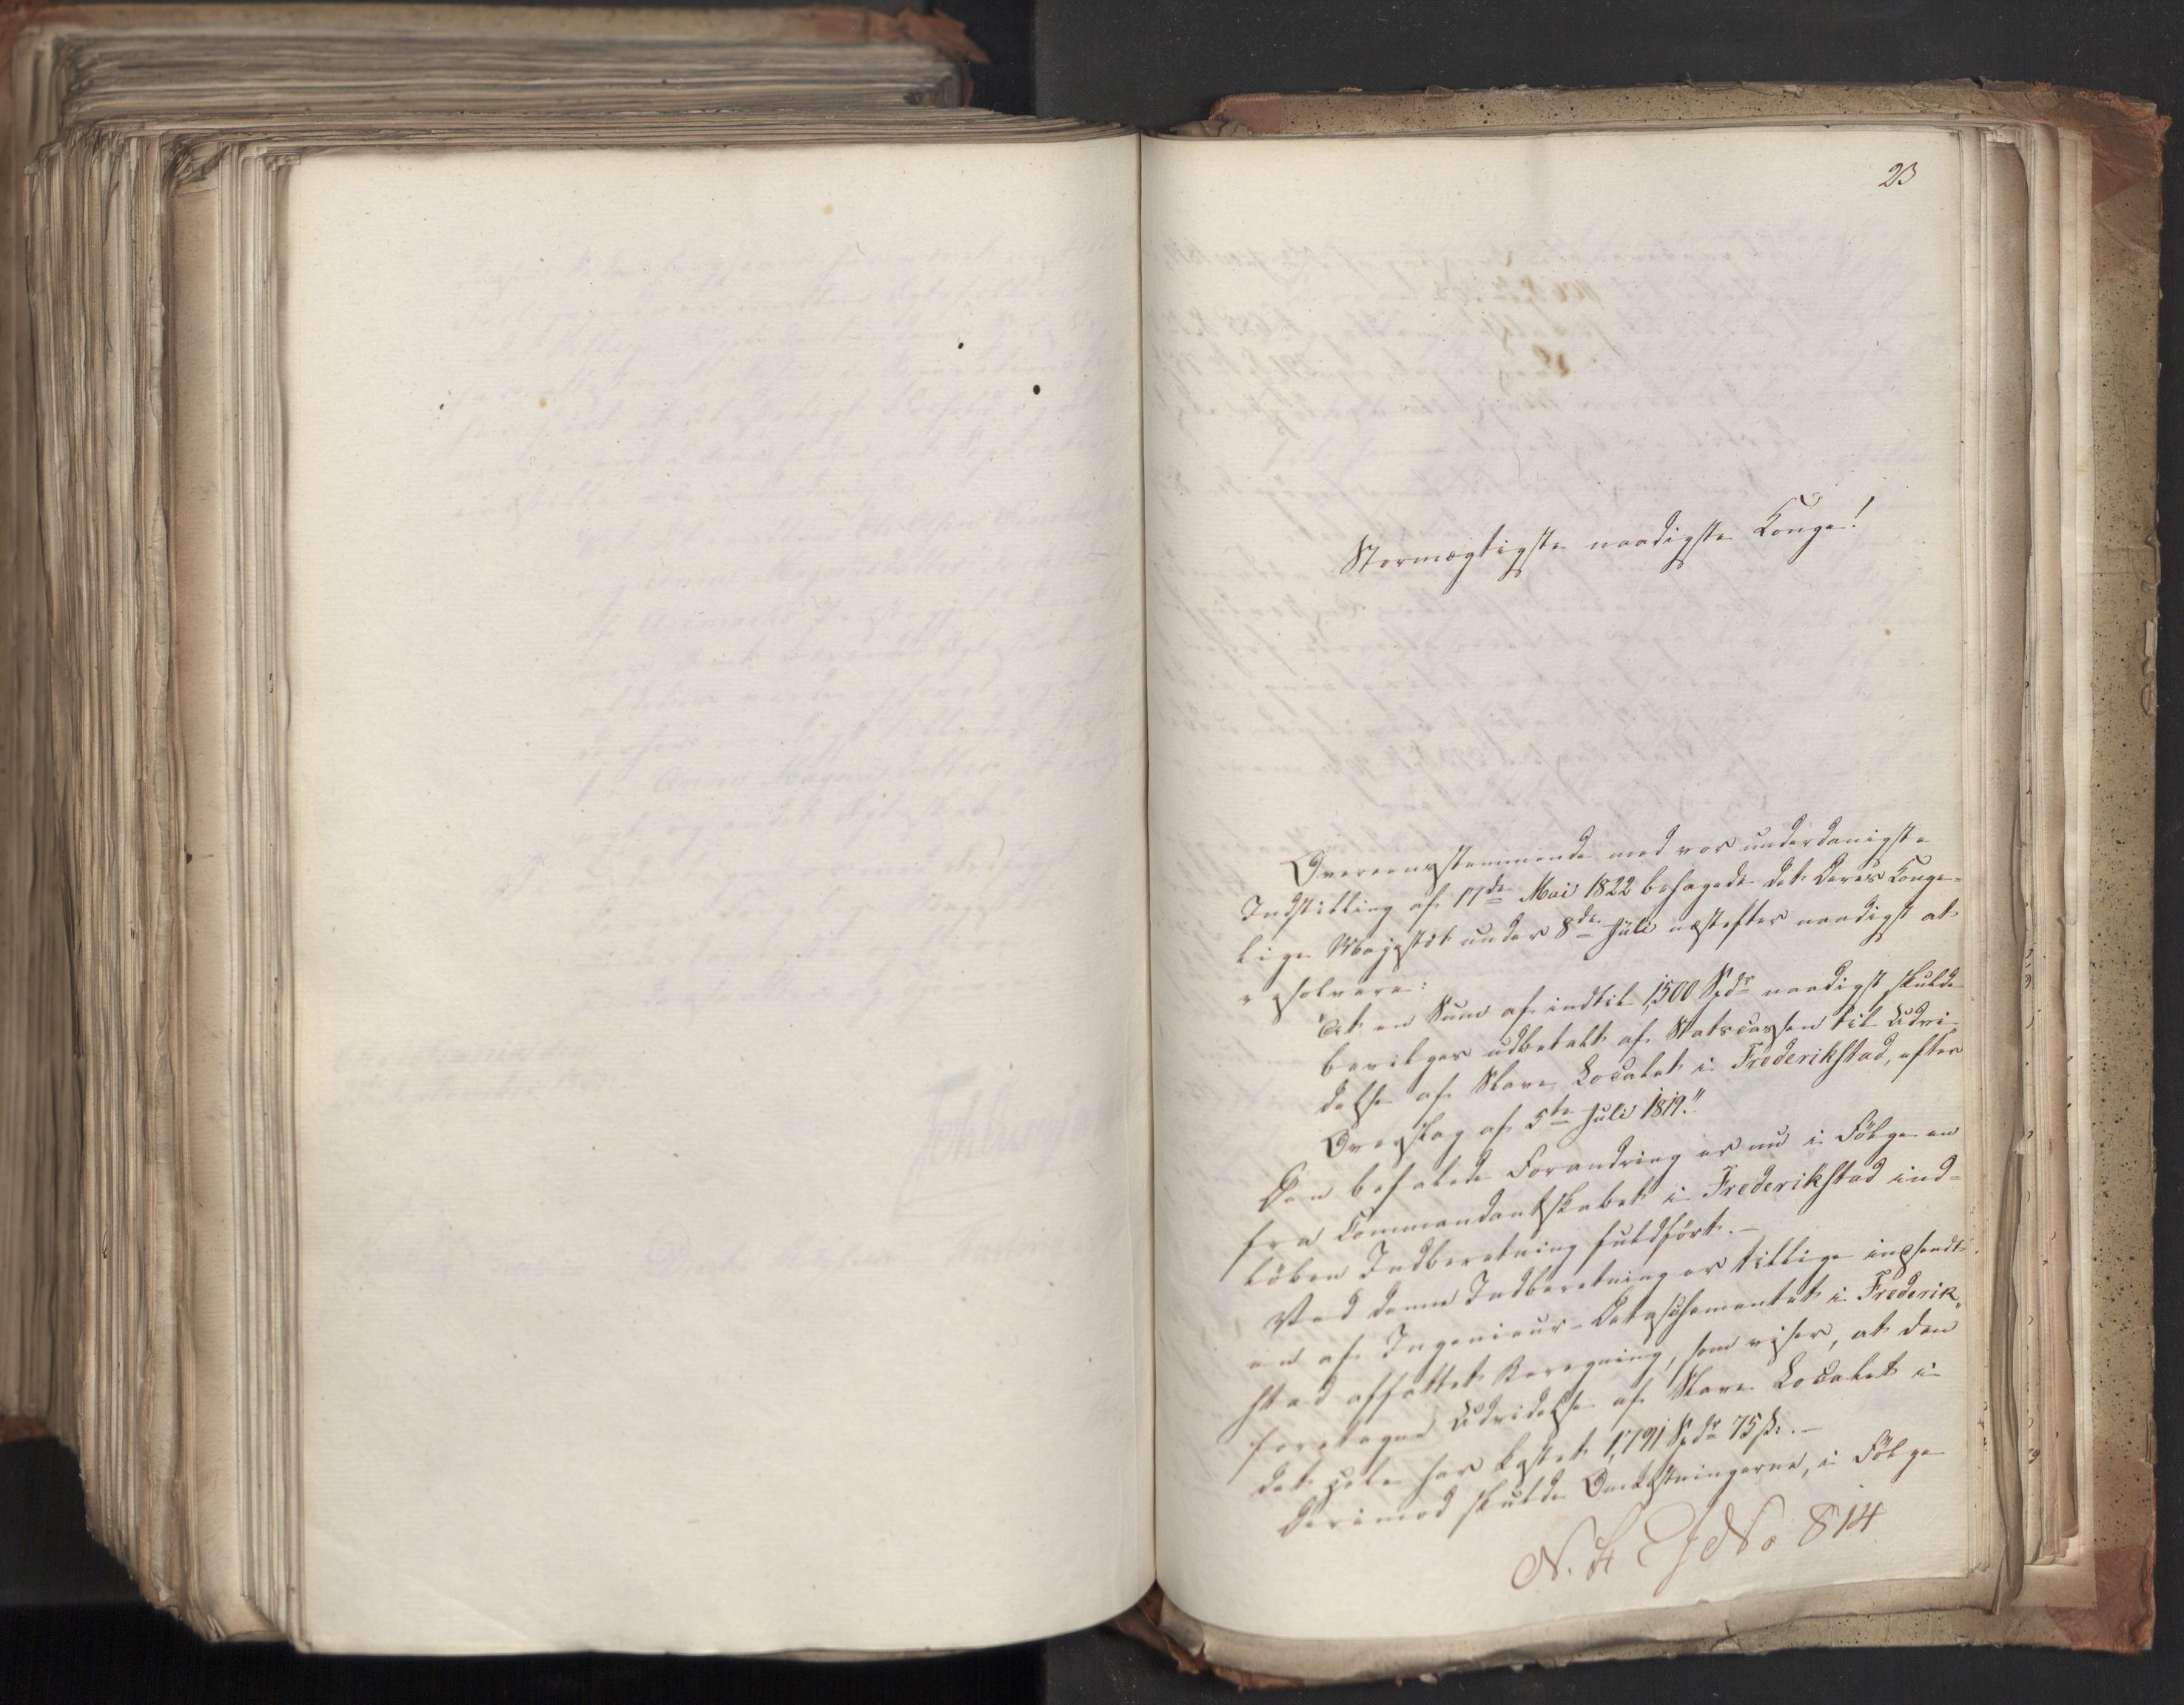 23
Stormægtigste naadigste Konge!
Overeensstemmende med vor underdanigste
Indstilling af 17de Mai 1822 behagede det Deres Konge-
lige Majestæt under 8de Juli næstefter naadigst at
resolvere:
"At en Sum af indtil 1,500 Spdr naadigst skulde
bevilges udbetalt af Statscassen til Udvi-
delse af Slave Localet i Frederikstad, efter
Overslag af 5te Juli 1819."
Den befalede Forandring er nu i Fölge en
fra Commandantskabet i Frederikstad ind-
löben Indberetning fuldfört.-
Ved denne Indberetning er tillige indsendt
en af Ingenieur-Detaschementet i Frederik
stad affattet Beregning, som viser, at den
foretagne Udvidelse af Slave Localet i
det Hele har kostet 1,791 Spdr 75 s.-
Derimod skulde Omkostningerne, i Fölge
No 814